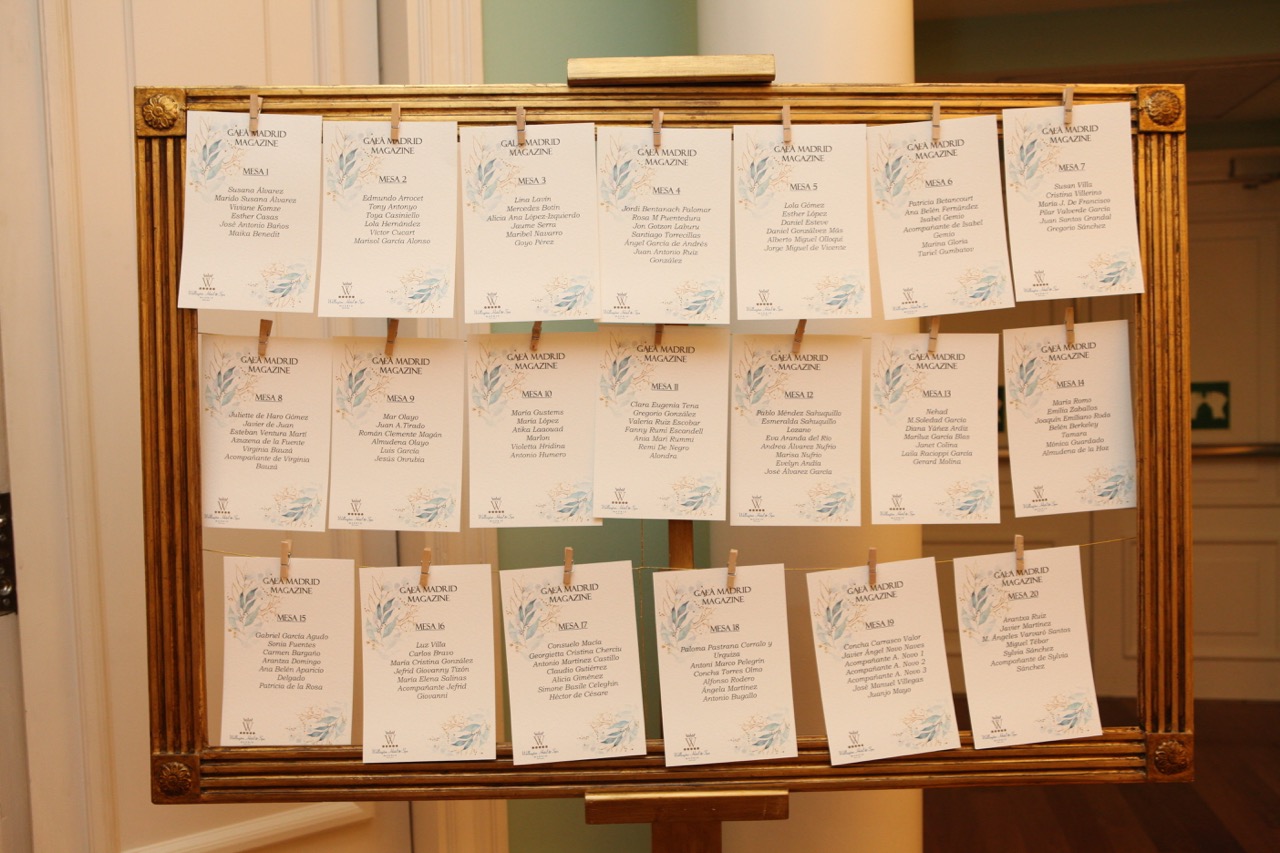 GALA MADRID
MAGAZINE
MESA 1
Susana Álvarez
Marido Susana Álvarez
Viviane Komze
Esther Casas
José Antonio Baños
Maika Benedit
GALA MADRID
MAGAZINE
MESA 2
Edmundo Arrocet
Tony Antonyo
Toya Casiniello
Lola Hernández
Victor Cucart
Marisol García Alonso
GALA MADRID
MAGAZINE
MESA 3
Lina Lavin
Mercedes Batin
Alicia Ana López-Izquierdo
Jaume Serra
Maribel Navarro
Goyo Pérez
GALA MADRID
MAGAZINE
MESA 4
Jordi Bentarach Palomar
Rosa M Puentedura
Jon Gotzon Laburu
Santiago Torrecillas
Ángel García de Andrés
Juan Antonio Ruiz
González
GALA MADRID
MAGAZINE
MESA 5
Lola Gómez
Esther López
Daniel Esteve
Daniel Gonzálvez Más
Alberto Miguel Olloqui
Jorge Miguel de Vicente
GALA MADRID
MAGAZINE
MESA 6
Patricia Betancourt
Ana Belén Fernández
Isabel Gemio
Acompañante de Isabel
Gemio
Marina Gloria
Tariel Gumbatov
GALA MADRID
MAGAZINE
MESA 7
Susan Villa
Cristina Villerino
María J. De Francisco
Pilar Valverde García
Juan Santos Grandal
Gregorio Sánchez
GALA MADRID
MAGAZINE
MESA 8
Juliette de Haro Gómez
Javier de Juan
Esteban Ventura Martí
Azuzena de la Fuente
Virginia Bauzá
Acompañante de Virginia
Bauzá
GALA MADRID
MAGAZINE
MESA 9
Mar Olayo
Juan A.Tirado
Román Clemente Magán
Almudena Olayo
Luis García
Jesús Onrubia
GALA MADRID
MAGAZINE
MESA 10
María Gustems
María López
Atika Laaouad
Marlon
Violetta Hridina
Antonio Humero
GALA MADRID
MAGAZINE
MESA 11
Clara Eugenia Tena
Gregorio González
Valeria Ruiz Escobar
Fanny Rumi Escondell
Ana Mari Rummi
Remi De Negro
Alondra
GALA MADRID
MAGAZINE
MESA 12
Pablo Méndez Sahuquillo
Esmeralda Sahuquillo
Lozano
Eva Aranda del Río
Andrea Álvarez Nufrio
Marisa Nufrio
Evelyn Ardía
José Álvarez García
GALA MADRID
MAGAZINE
MESA 13
Nehad
M.Soledad García
Diana Yáñez Ardiz
Mariluz García Blas
Janet Colina
Laila Rucioppi García
Gerard Molina
GALA MADRID
MAGAZINE
MESA 14
María Romo
Emilia Zaballos
Joaquín Emiliano Roda
Belén Berkeley
Tamara
Mónica Guardado
Almudena de la Hoz
GALA MADRID
MAGAZINE
MESA 15
Gabriel García Agudo
Sonia Fuentes
Carmen Bargaño
Arantza Domingo
Ana Belén Aparicio
Delgado
Patricia de la Rosa
GALA MADRID
MAGAZINE
MESA 16
Luz Villa
Carlos Bravo
María Cristina González
Jefrid Giovanny Tizón
María Elena Salinas
Acompañante Jefrid
Giovanni
GALA MADRID
MAGAZINE
MESA 17
Consuelo Macía
Georgietta Cristina Cherciu
Antonio Martínez Castillo
Claudia Gutiérrez
Alicia Giménez
Simone Basile Celeghin
Héctor de César
GALA MADRID
MAGAZINE
MESA 18
Paloma Pastrana Corralo y
Urquiza
Antoni Marco Pelegrin
Concha Torres Olmo
Alfonso Rodero
Ángela Martínez
Antonio Bugallo
GALA MADRID
MAGAZINE
MESA 19
Concha Carrasco Valor
Javier Ángel Novo Naves
Acompañante A. Novo 1
Acompañante A. Novo 2
Acompañante A. Novo 3
José Manuel Villegas
Juanjo Mayo
GALA MADRID
MAGAZINE
MESA 20
Arantxa Ruiz
Javier Martínez
M. Ángeles Varvaró Santos
Miguel Tébar
Sylvia Sánchez
Acompañante de Sylvia
Sánchez